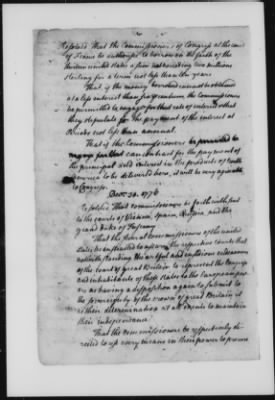 Resolved That the Commissioners of Congress at the court
of France be authorised to borrow on the faith of the
thirteen united states a sum not exceeding two millions
sterling for a term not less than ten years
That if the money borrowed cannot be obtained
at a less interest than six per centum, the Commissioners
be permitted to engage for that rate of interest & that
they stipulate for the payment of the interest at
periods not less than annual.
That if the Commissioners be permitted to
engage for that can contract for the payment of
the principal and interest in the products of north
america to be delivered here, it will be very agreeable
to Congress.
Decr. 30. 1776
Resolved That commissioners be forthwith sent
to the courts of Vienna, Spain, Prussia, and the
grand Duke of Tuscany
That the several commissioners of the united
states be instructed to assure the respective courts that
notwithstanding the artful and insidious endeavours
of the court of great Britain to represent the Congress
and inhabitants of these states to the European powers
as having a disposition again to submit to
the sovereignty of the crown of great Britain it
is their determination at all events to maintain
their independance
That the commissioners be respectively di-
rected to use every means in their power to procure